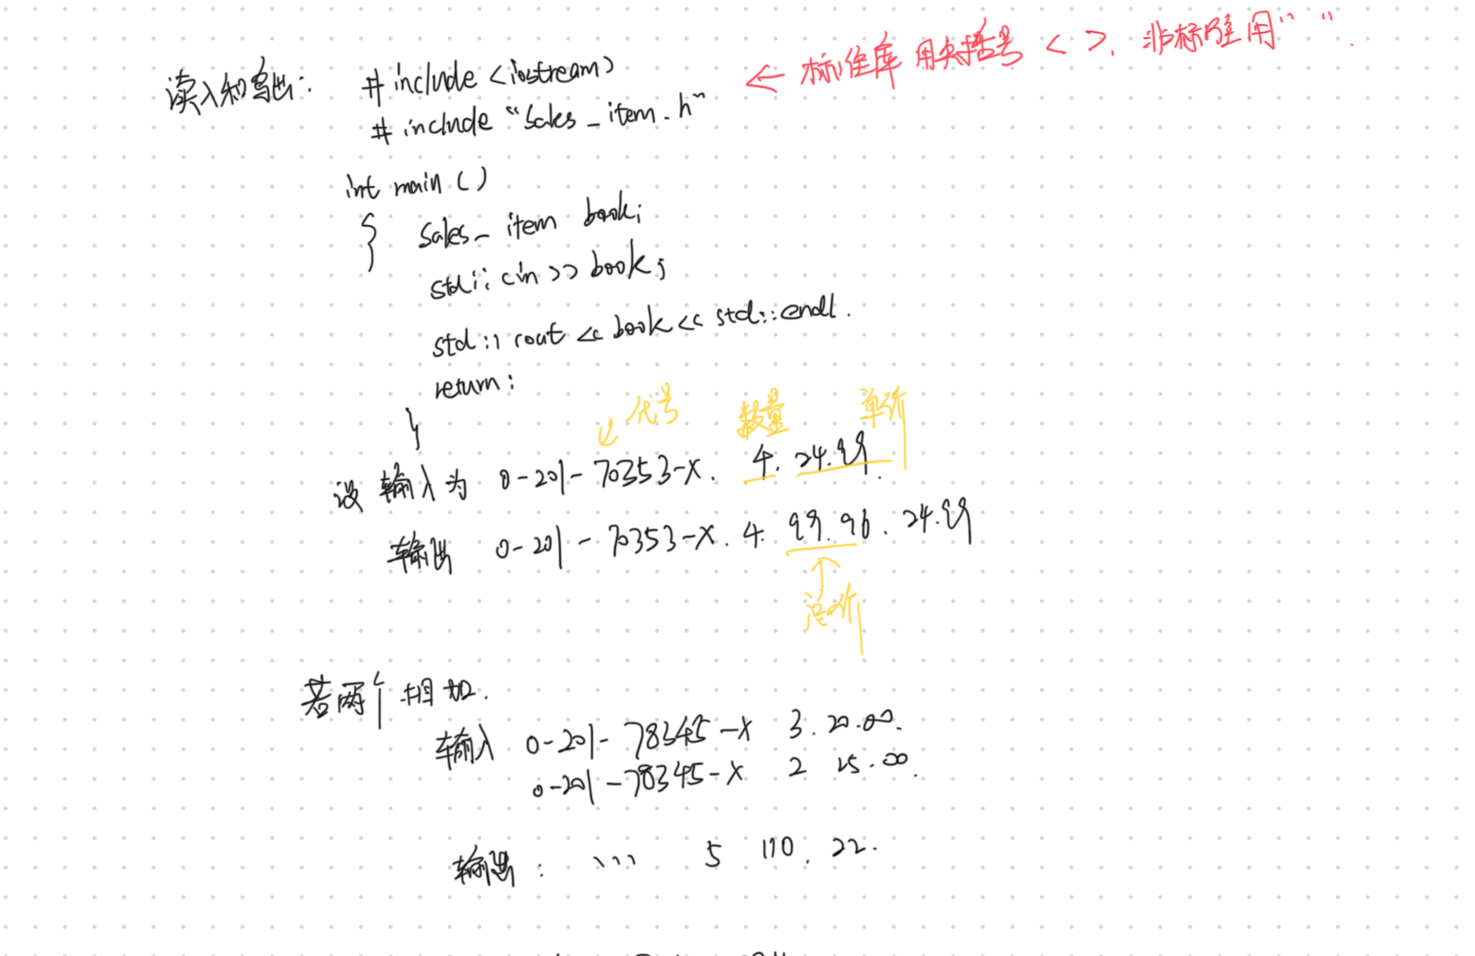 读入和写出: #include <iostream) ← 标准库用尖括号 < >, 非标准用" ".
#include "Sales_item.h"
int main ()
{ Sales_item book;
std:: cin >> book;
std:: cout << book << std::endl.
return;
}
代号 数量 单价
设输入为 0-201-70353-X. 4. 24.99.
输出 0-201-70353-X. 4. 99.96. 24.99
总价
若两个相加.
输入 0-201-78345-X 3. 20.00.
0-201-78345-X 2 25.00.
输出: 、、、 5 110. 22.